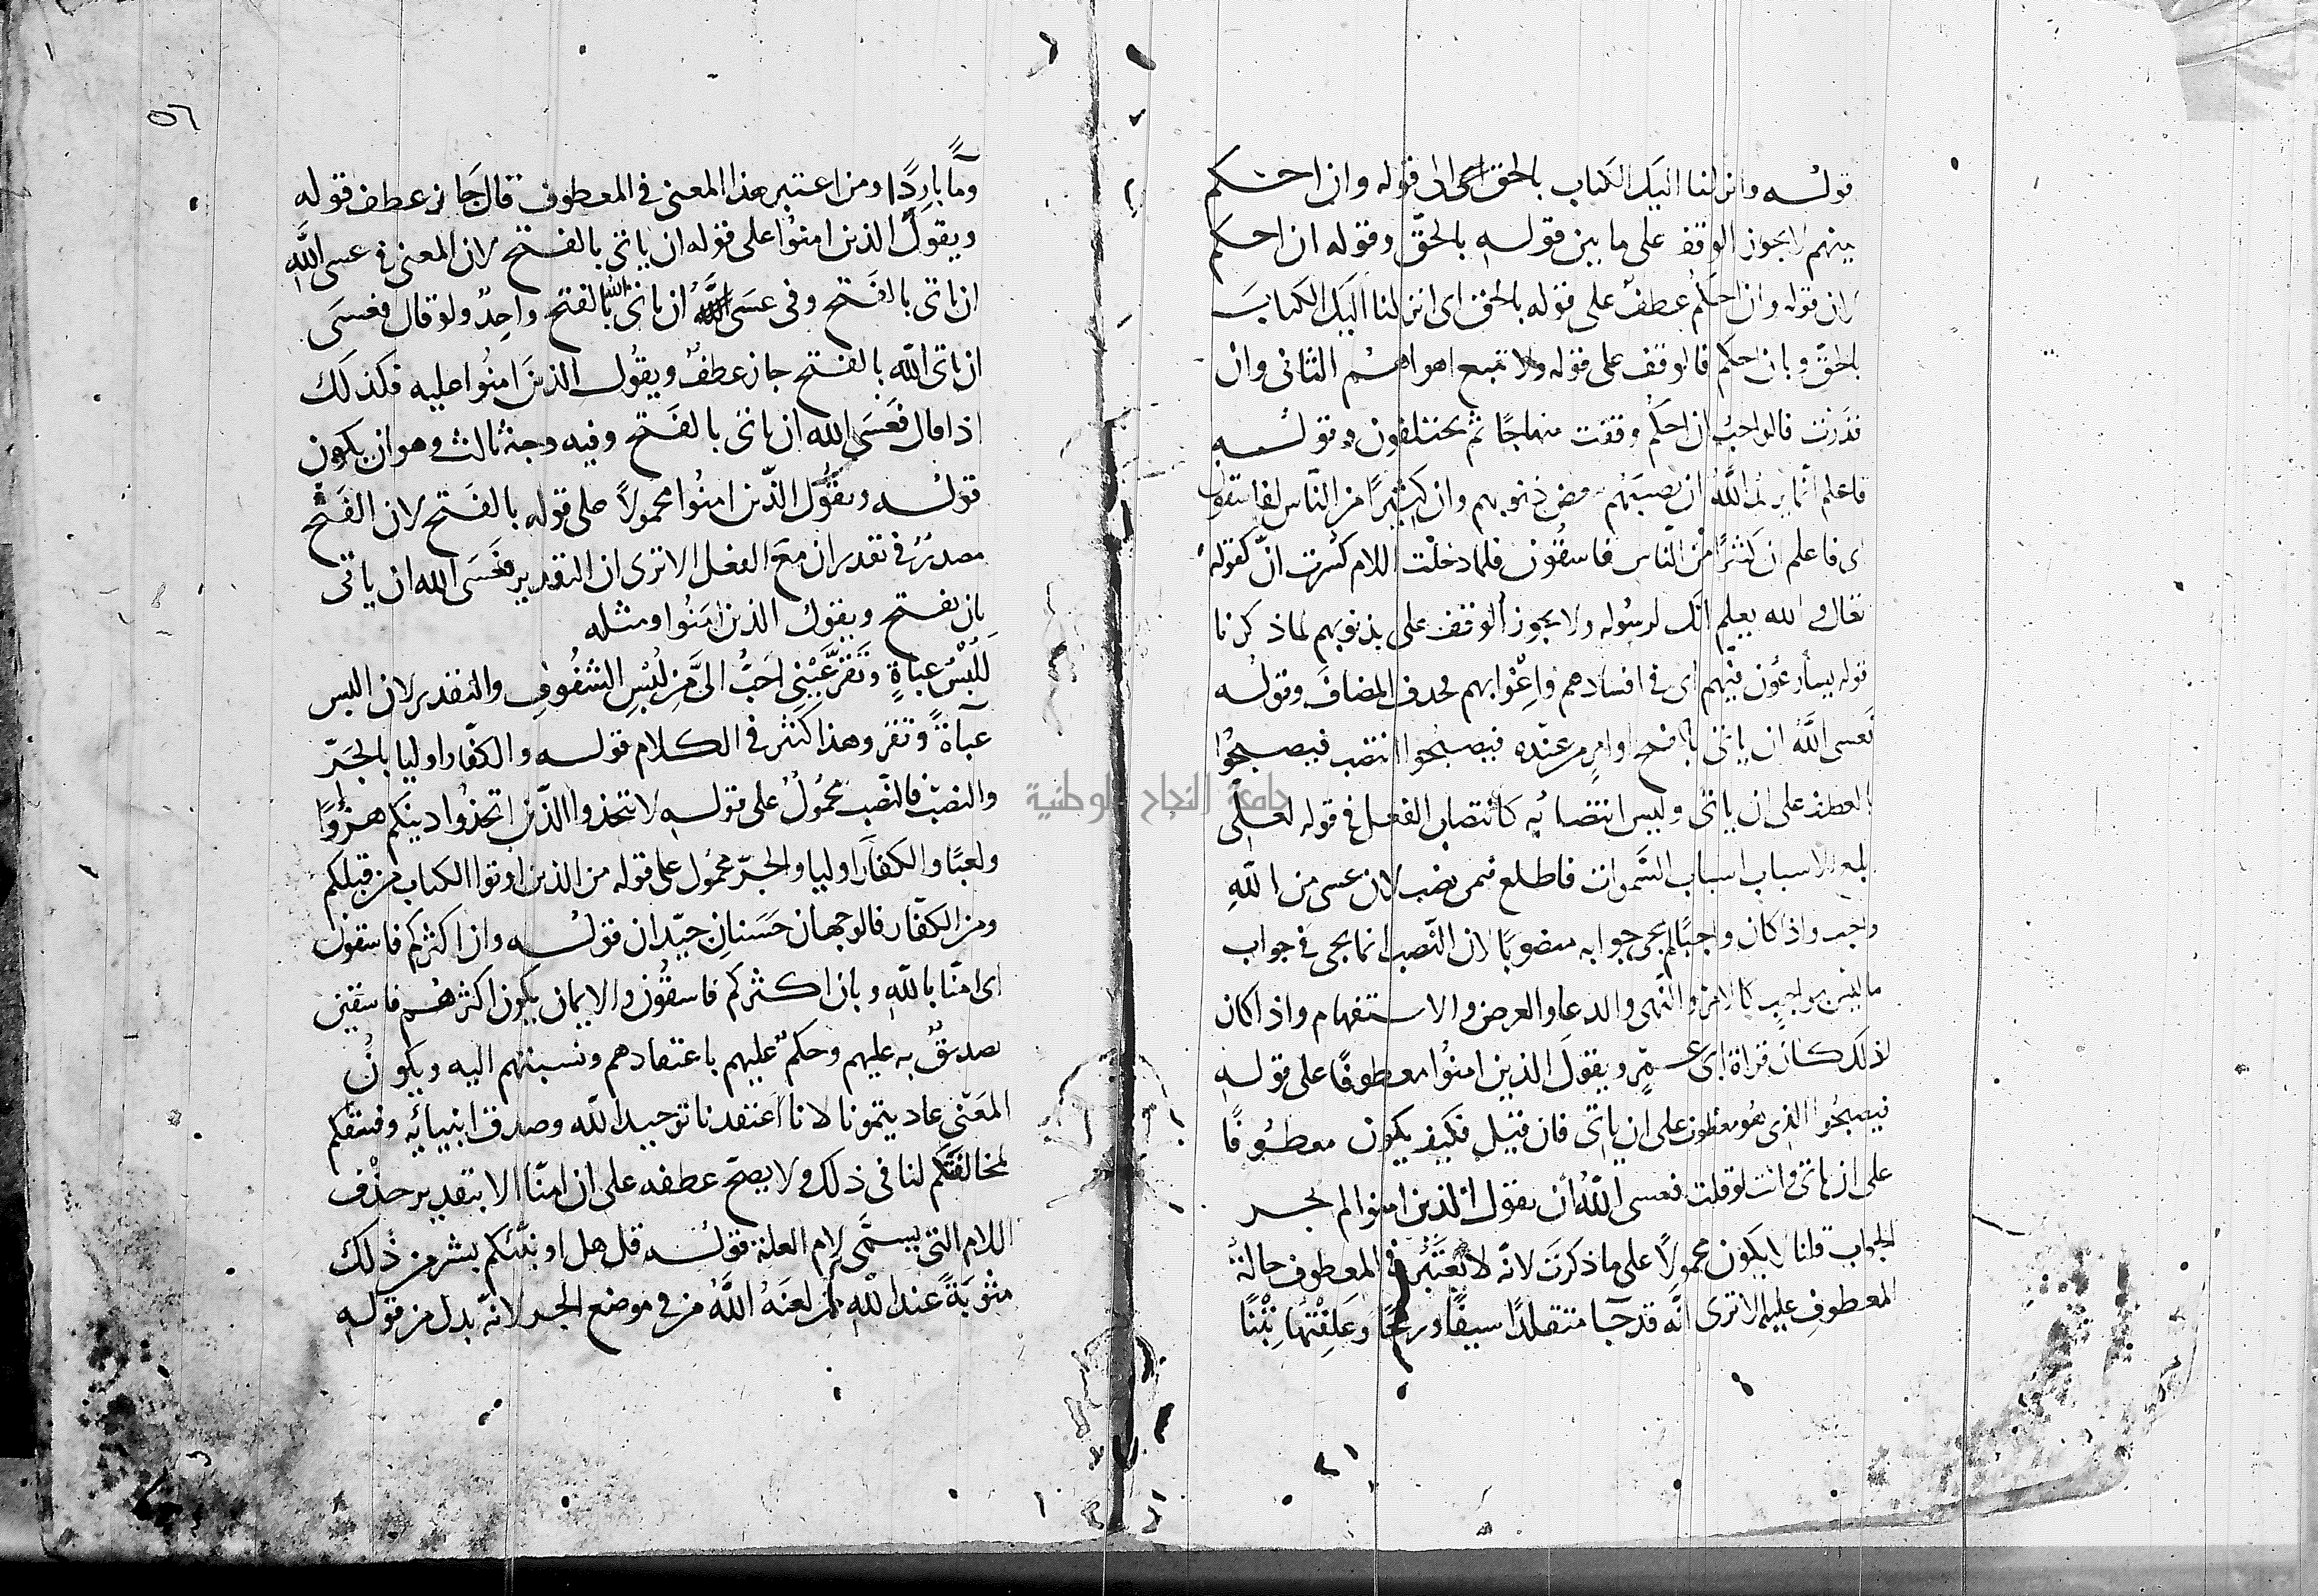 قوله وانزلنا اليك الكتاب بالحق الى قوله وان احكم
بينهم لا يجوز الوقف على ما بين قوله بالحق وقوله ان احكم
لان قوله وان احكم عطف على قوله بالحق اى انزلنا اليك الكتاب
بالحق وبان احكم فالوقف على قوله ولا تتبع اهواهم الثانى وان
قدرت فالواجب ان احكم وقفت منهاجا ثم يختلفون وقوله
فاعلم انما يريد الله ان يصيبهم ببعض ذنوبهم وان كثيرا من الناس لفاسقون
اى فاعلم ان كثيرا من الناس فاسقون فلما دخلت اللام كسرت ان كقوله
تعالى والله يعلم انك لرسوله ولا يجوز الوقف على بذنوبهم لما ذكرنا
قوله يسارعون فيهم اى فى افسادهم واغوابهم فحذف المضاف وقوله
فعسى الله ان ياتى بالفتح او امر من عنده فيصبحوا انتصب فيصبحوا
بالعطف على ان ياتى وليس انتصابه كانتصاب الفعل فى قوله لعلى
ابلغ الاسباب اسباب السموات فاطلع فيمن نصب لان عسى من الله
واجب واذا كان واجبا لم يجى جوابه منصوبا لان النصب انما يجى فى جواب
ما ليس بواجب كالامر والنهى والدعا والعرض والاستفهام واذا كان
لذلك كان قراة ابى عمرو ويقول الذين امنوا معطوفا على قوله
فيصبحوا الذى هو معطوف على ان ياتى فان قيل فكيف يكون معطوفا
على ان ياتى وانت لو قلت فعسى الله ان يقول الذين امنوا لم يجز
الجواب قلنا لا يكون محمولا على ما ذكرت لانه لا يعتبر فى المعطوف حالة
المعطوف عليه الا ترى انه قد جا متقلدا سيفا ورمحا وعلفتها تبنا
ومآ باردا ومن اعتبر هذا المعنى فى المعطوف قال جاز عطف قوله
ويقول الذين امنوا على قوله ان ياتى بالفتح لان المعنى فى عسى الله
ان ياتى بالفتح وفى عسى ان ياتى الله بالفتح واحد ولو قال فعسى
ان ياتى الله بالفتح جاز عطف ويقول الذين امنوا عليه فكذلك
اذا قال فعسى الله ان ياتى بالفتح وفيه وجه ثالث وهو ان يكون
قوله ويقول الذين امنوا محمولا على قوله بالفتح لان الفتح
مصدر فى تقدير ان مع الفعل الا ترى ان التقدير فعسى الله ان ياتى
بان يفتح ويقول الذين امنوا ومثله
للبس عباة وتقر عينى احب الى من لبس الشفوف والتقدير لان البس
عبآة وتقر وهذا كثر فى الكلام قوله والكفار اوليا بالجر
والنصب فالنصب محمول على قوله لا تتخذوا الذين اتخذوا دينكم هزوا
ولعبا والكفار اوليا والجر محمول على قوله من الذين اوتوا الكتاب من قبلكم
ومن الكفار فالوجهان حسنان جيدان قوله وان اكثركم فاسقون
اى امنا بالله وبان اكثركم فاسقون والايمان بكون اكثرهم فاسقين
تصديق به عليهم وحكم عليهم باعتقادهم ونسبتهم اليه ويكون
المعنى عاديتمونا لانا اعتقدنا توحيد الله وصدق انبيائه وفسقكم
لمخالفتكم لنا فى ذلك ولا يصح عطفه على ان امنا الا بتقدير حذف
اللام التى يسمى لام العلة قوله قل هل اونبئكم بشر من ذلك
مثوبة عند الله من لعنه الله من فى موضع الجر لانه بدل من قوله
٥٦
جامعة النجاح الوطنية